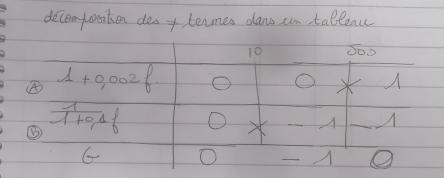 décomposition des ≠ termes dans un tableau
10 500
Ⓐ 1 + 0,002 f 0 0 × 1
Ⓑ 1/1+0,1 f 0 × - 1 - 1
G 0 - 1 0